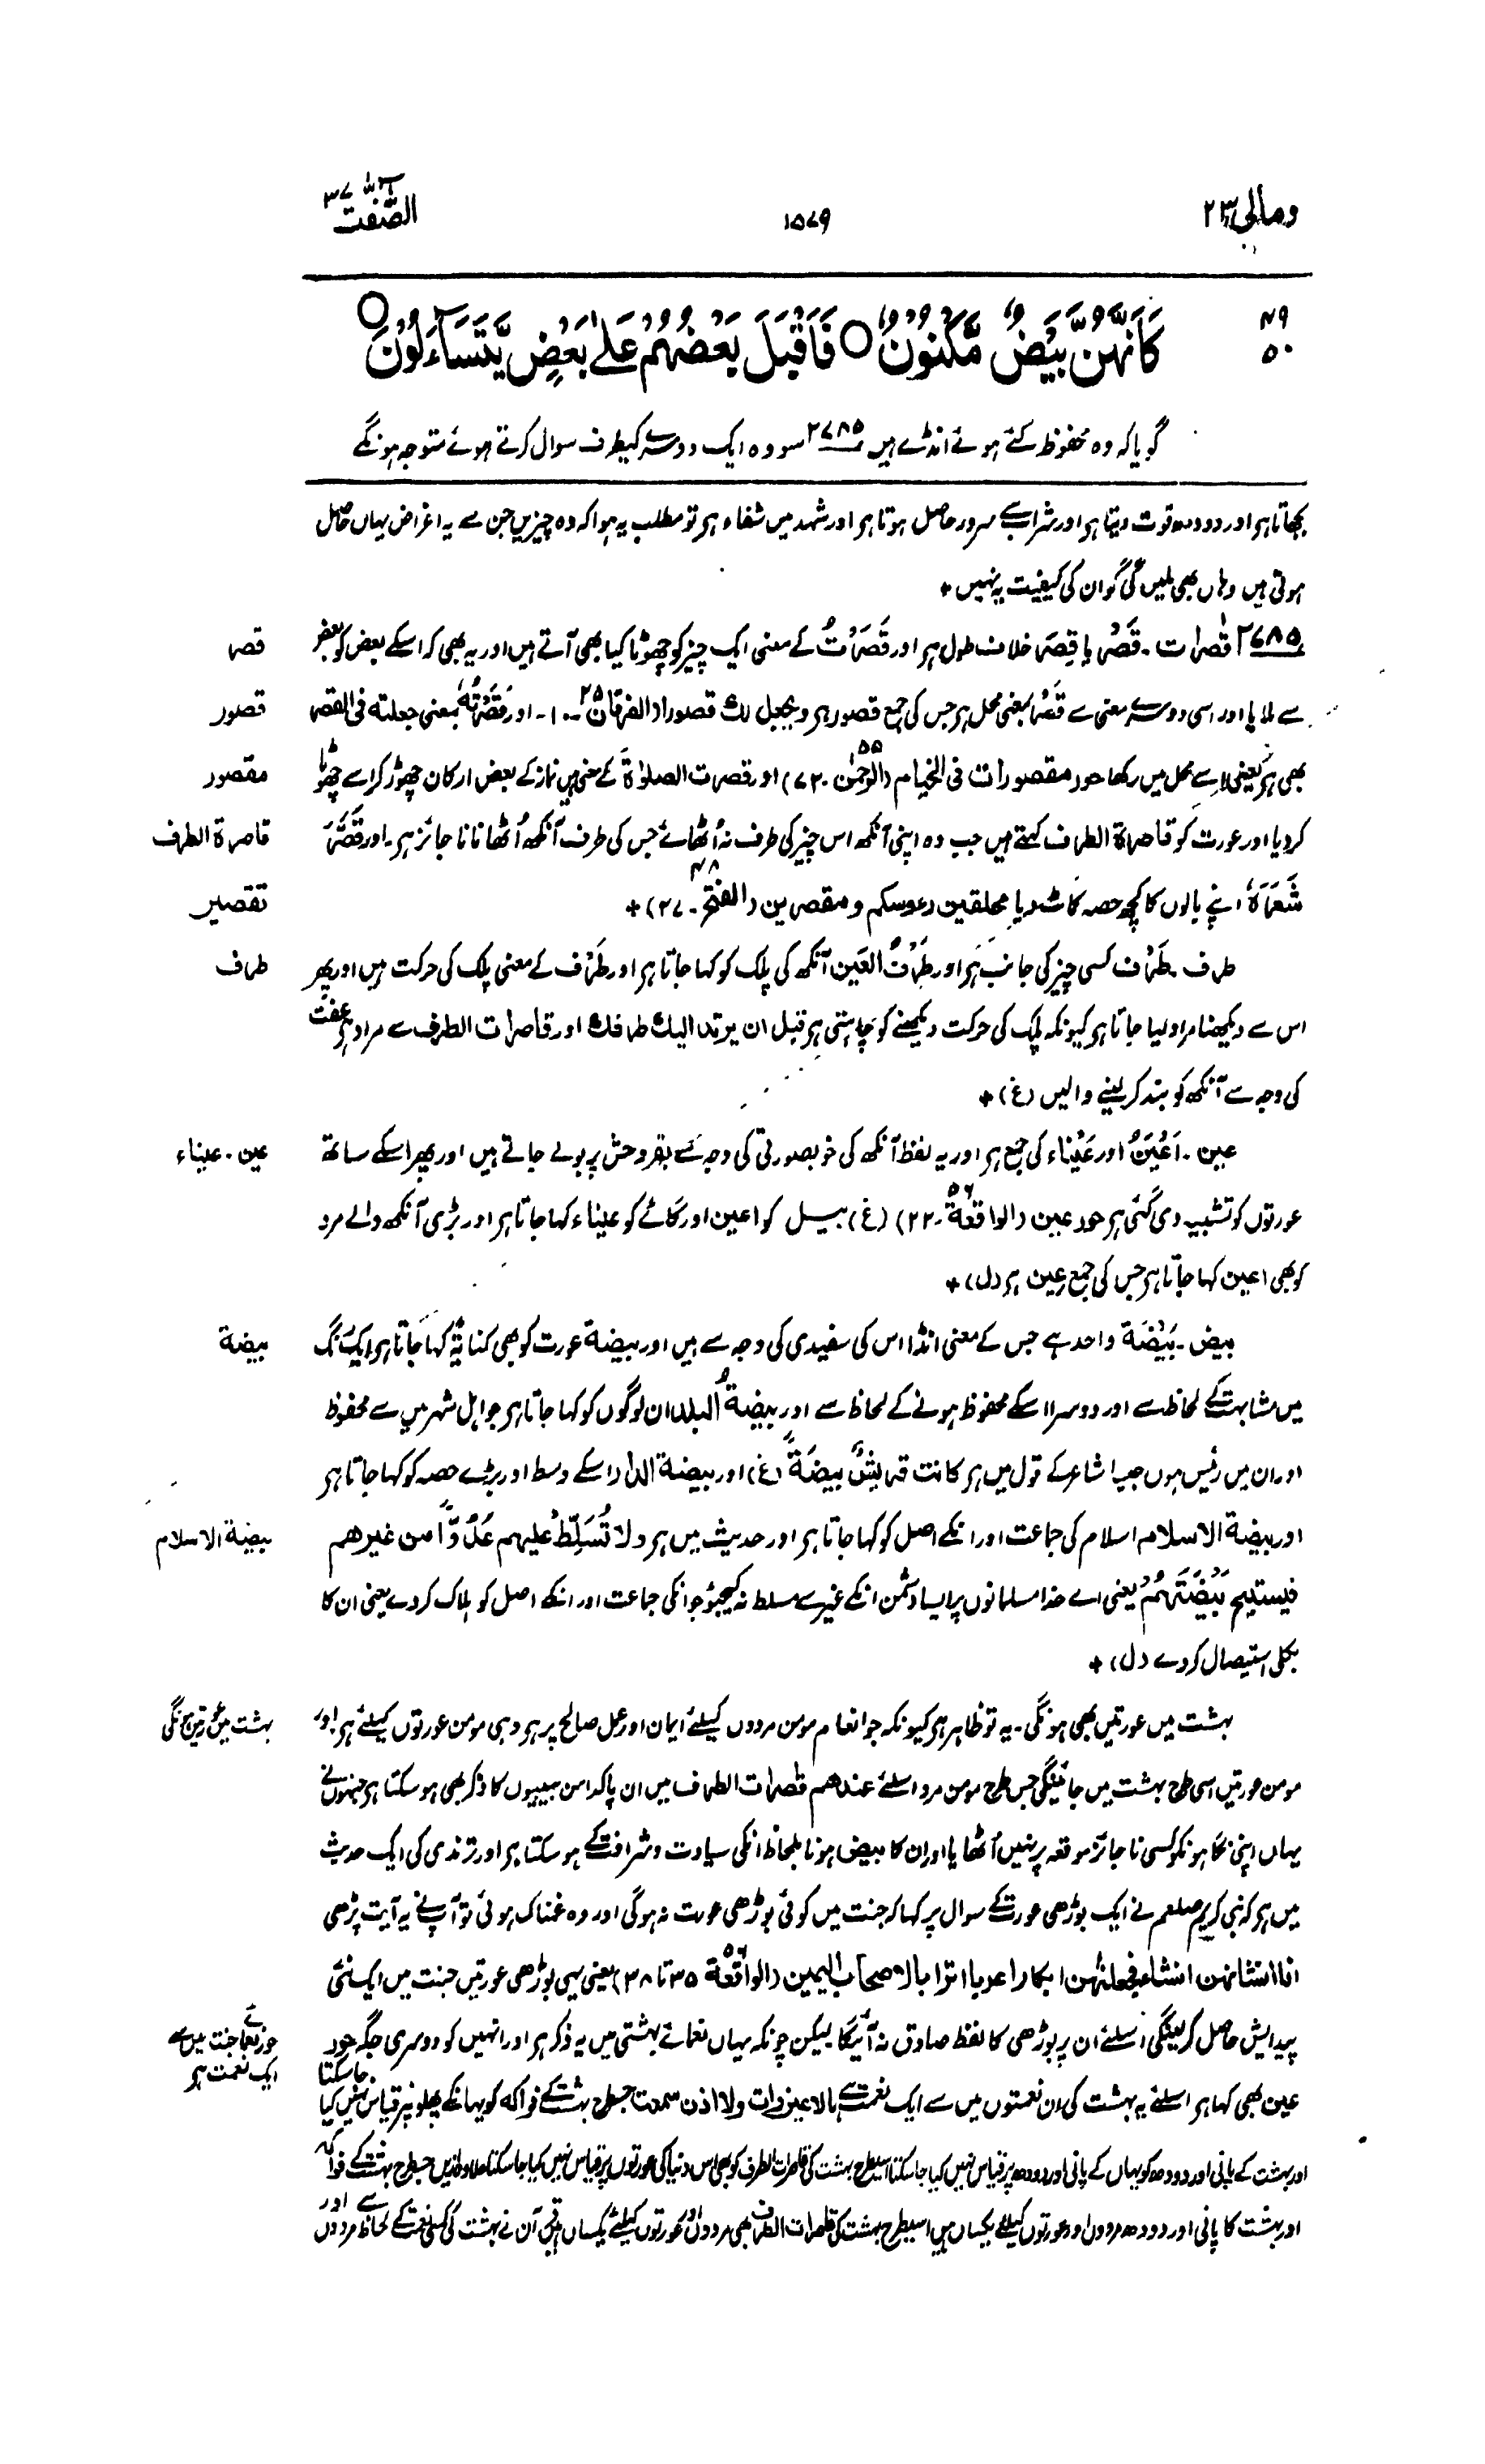 ومالی ۲۳
۱۵۷۹
الصّٰفّٰت ۳۷
۴۹
۵۰
كَاَنَّهُنَّ بَيْضٌ مَّكْنُوْنٌ ○ فَاَقْبَلَ بَعْضُهُمْ عَلٰى بَعْضٍ يَّتَسَآءَلُوْنَ ○
گویا کہ وہ محفوظ کئے ہوئے انڈے ہیں ۲۷۸۵ سو وہ ایک دوسرے کیطرف سوال کرتے ہوئے متوجہ ہونگے
بجھاتا ہر اور دودھ قوت دیتا ہر اور شراب سے سرور حاصل ہوتا ہر اور شہد میں شفاء ہر تو مطلب یہ ہوا کہ وہ چیزیں جن سے یہ اغراض یہاں حاصل
ہوتی ہیں وہاں بھی ملیں گی گو ان کی کیفیت یہ نہیں +
۲۷۸۵ قٰصرات ۔ قَصْر یا قِصَر خلاف طول ہر اور قَصَرْتُ کے معنی ایک چیز کو چھوٹا کیا بھی آتے ہیں اور یہ بھی کہ اسکے بعض کو بعض
قصر
سے ملایا اور اسی دوسرے معنی سے قَصْر بمعنی محل ہر جس کی جمع قصور ہر ویجعل لك قصورا (الفرقان ۲۵۔۱۰) اور قَصَرْتُهٗ بمعنی جعلته فی القصر
قصور
بھی ہر یعنی اسے محل میں رکھا حور مقصورات فی الخیام (الرحمٰن ۵۵۔۷۲) اور قصرت الصلوٰة کے معنی ہیں نماز کے بعض ارکان چھوڑ کر اسے چھوٹا
مقصور
کردیا اور عورت کو قاصرة الطرف کہتے ہیں جب وہ اپنی آنکھ اس چیز کی طرف نہ اُٹھائے جس کی طرف آنکھ اُٹھانا ناجائز ہر ۔ اور قَصَّرَ
قاصرة الطرف
شَعَرَهٗ اپنے بالوں کا کچھ حصہ کاٹ دیا محلقین رءوسکم ومقصرین (الفتح ۴۸۔۲۷) +
تقصیر
طرف ۔ طَرْف کسی چیز کی جانب ہر اور طَرْفُ العَین آنکھ کی پلک کو کہا جاتا ہر اور طَرْف کے معنی پلک کی حرکت ہیں اور پھر
طرف
اس سے دیکھنا مراد لیا جاتا ہر کیونکہ پلک کی حرکت دیکھنے کو چاہتی ہر قبل ان یرتد الیك طرفك اور قاصرات الطرف سے مراد ہر عفت
کی وجہ سے آنکھ کو بند کر لینے والیں (غ) +
عین ۔ اَعْیَنُ اور عَیْناء کی جمع ہر اور یہ لفظ آنکھ کی خوبصورتی کی وجہ سے بقر وحش پر بولے جاتے ہیں اور پھر اسکے ساتھ
عین ۔ عیناء
عورتوں کو تشبیہ دی گئی ہر حور عین (الواقعة ۵۶۔۲۲) (غ) بیل کو اعین اور گائے کو عیناء کہا جاتا ہر اور بڑی آنکھ والے مرد
کو بھی اعین کہا جاتا ہر جس کی جمع عِین ہر (ل) +
بیض ۔ بَیْضَة واحد ہے جس کے معنی انڈا اس کی سفیدی کی وجہ سے ہیں اور بیضة عورت کو بھی کنایۃً کہا جاتا ہر ایک رنگ
بیضة
میں مشابہت کے لحاظ سے اور دوسرا اسکے محفوظ ہونے کے لحاظ سے اور بیضةُ البلد ان لوگوں کو کہا جاتا ہر جو اہل شہر میں سے محفوظ
اور ان میں رئیس ہوں جیسا شاعر کے قول میں ہر کانت قریشٌ بیضَةً (غ) اور بیضة الدار اسکے وسط اور بڑے حصہ کو کہا جاتا ہر
اور بیضة الاسلام اسلام کی جماعت اور انکے اصل کو کہا جاتا ہر اور حدیث میں ہر ولا تُسَلِّطْ علیہم عَدُوًّا من غیرهم
بیضة الاسلام
فیستبیح بَیْضَتَهُمْ یعنی اے خدا مسلمانوں پر ایسا دشمن انکے غیر سے مسلط نہ کیجیو جو انکی جماعت اور انکے اصل کو ہلاک کردے یعنی ان کا
بکلی استیصال کردے (ل) +
بہشت میں عورتیں بھی ہونگی ۔ یہ تو ظاہر ہر کیونکہ جو انعام مومن مردوں کیلئے ایمان اور عمل صالح پر ہر وہی مومن عورتوں کیلئے ہر اور
بہشت میں عورتیں ہونگی
مومن عورتیں اسی طرح بہشت میں جائینگی جس طرح مومن مرد اسلئے عندهم قٰصرات الطرف میں ان پاکدامن بیبیوں کا ذکر بھی ہو سکتا ہر جنہوں نے
یہاں اپنی نگاہونکو کسی ناجائز موقعہ پر نہیں اُٹھایا اور ان کا بیض ہونا بلحاظ انکی سیادت و شرافت کے ہو سکتا ہر اور ترمذی کی ایک حدیث
میں ہر کہ نبی کریم صلعم نے ایک بوڑھی عورت کے سوال پر کہا کہ جنت میں کوئی بوڑھی عورت نہ ہوگی اور وہ غمناک ہوئی تو آپ نے یہ آیت پڑھی
انا انشانٰهن انشاء فجعلنٰهن ابکارا عربا اترابا لاصحاب الیمین (الواقعة ۵۶ ۳۵ تا ۳۸) یعنی یہی بوڑھی عورتیں جنت میں ایک نئی
پیدایش حاصل کرینگی اسلئے ان پر بوڑھی کا لفظ صادق نہ آئیگا لیکن چونکہ یہاں نعمائے بہشتی میں یہ ذکر ہر اور انہیں کو دوسری جگہ حور
حور نعمائے جنت میں سے
ایک نعمت ہر
عین بھی کہا ہر اسلئے یہ بہشت کی ان نعمتوں میں سے ایک نعمت ہے مالا عین رات ولا اذن سمعت جسطرح بہشت کے فواکہ کو یہانکے پھلونپر قیاس نہیں کیا جاسکتا
اور بہشت کے پانی اور دودھ کو یہاں کے پانی اور دودھ پر قیاس نہیں کیا جاسکتا اسیطرح بہشت کی قاصرات الطرف کو بھی اس دنیا کی عورتوں پر قیاس نہیں کیا جاسکتا علاوہ ازیں جسطرح بہشت کے فواکہ
اور بہشت کا پانی اور دودھ مردوں اور عورتوں کیلئے یکساں ہیں اسیطرح بہشت کی قاصرات الطرف بھی مردوں اور عورتوں کیلئے یکساں ہیں قرآن نے بہشت کی کسی نعمت کے لحاظ سے مردوں اور